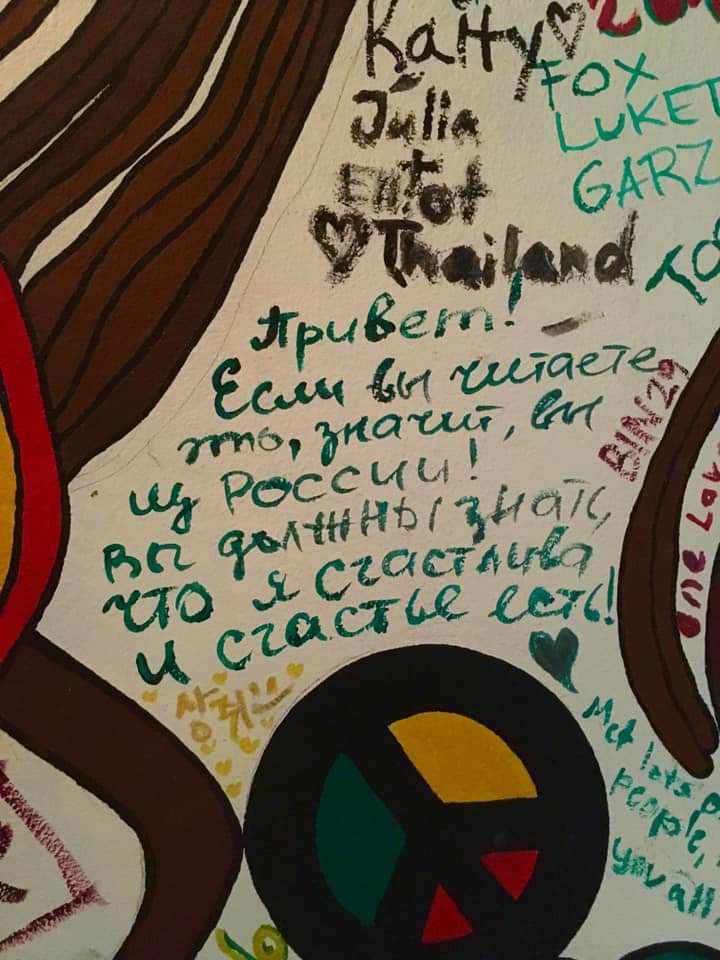 Katty
Julia
Thailand
FOX
LUKET
GARZ
Привет!
Если вы читаете
это, значит, вы
из России!
Вы должны знать,
что я счастлива
и счастье есть!
BIN29
one Lov
Met lots
people,
you all